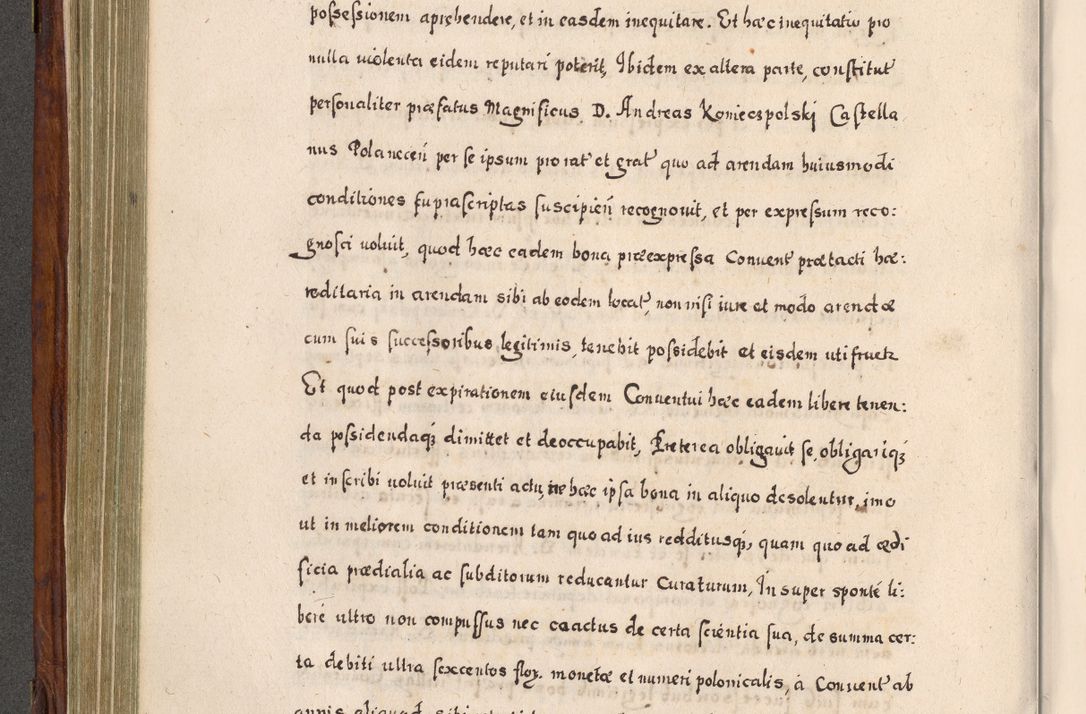 possessionem apræhendere, et in easdem inequitare. Et hæc inequitatio pro
nulla violenta eidem reputari poterit, Ibidem ex altera parte, constitut
personaliter præfatus Magnificus D. Andreas Koniecspolski Castella
nus Polanecen̄ per se ipsum pro rat et grat quo ad arendam huiusmodi
conditiones suprascriptas suscipien̄ recognovit, et per expressum reco:
gnosci voluit, quod hæc eadem bona præexpressa Convent prætacti hæ:
reditaria in arendam sibi ab eodem locat, non nisi iure et modo arendæ
cum suis successoribus legitimis, tenebit possidebit et eisdem utifruetꝛ
Et quod post expirationem eiusdem Conventui hæc eadem libere tenen:
da possidendaqꝫ dimittet et deoccupabit, Preterea obligavit se, obligariqꝫ
et inscribi voluit præsenti actu, ne hæc ipsa bona in aliquo desolentur, imo
ut in meliorem conditionem tam quo ad ius redditusqꝫ, quam quo ad ædi
ficia prædialia ac subditorum reducantur curaturum, In super sponté li:
beré ultro non compussus nec coactus de certa sciéntia sua, de summa cer:
ta debiti ultra sexcentos floꝝ. monetæ et numeri polonicalis, á Convent ab
annis aliquod sibi